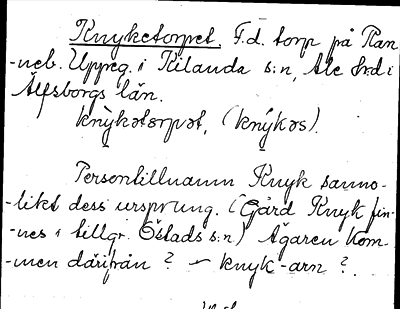 Knyketorpet. F.d. torp på Ran-
-neb. Uppreg. i Kilanda s:n, Ale hrd i
Älfsborgs län.
knỳkətɔrpət, (knýkəs).
Persontillnamn Knyk sanno-
-likt dess ursprung. (Gård Knyk fin-
-nes i tillgr. Östads s:n) Ägaren kom-
-men därifrån? – knyk-arn?